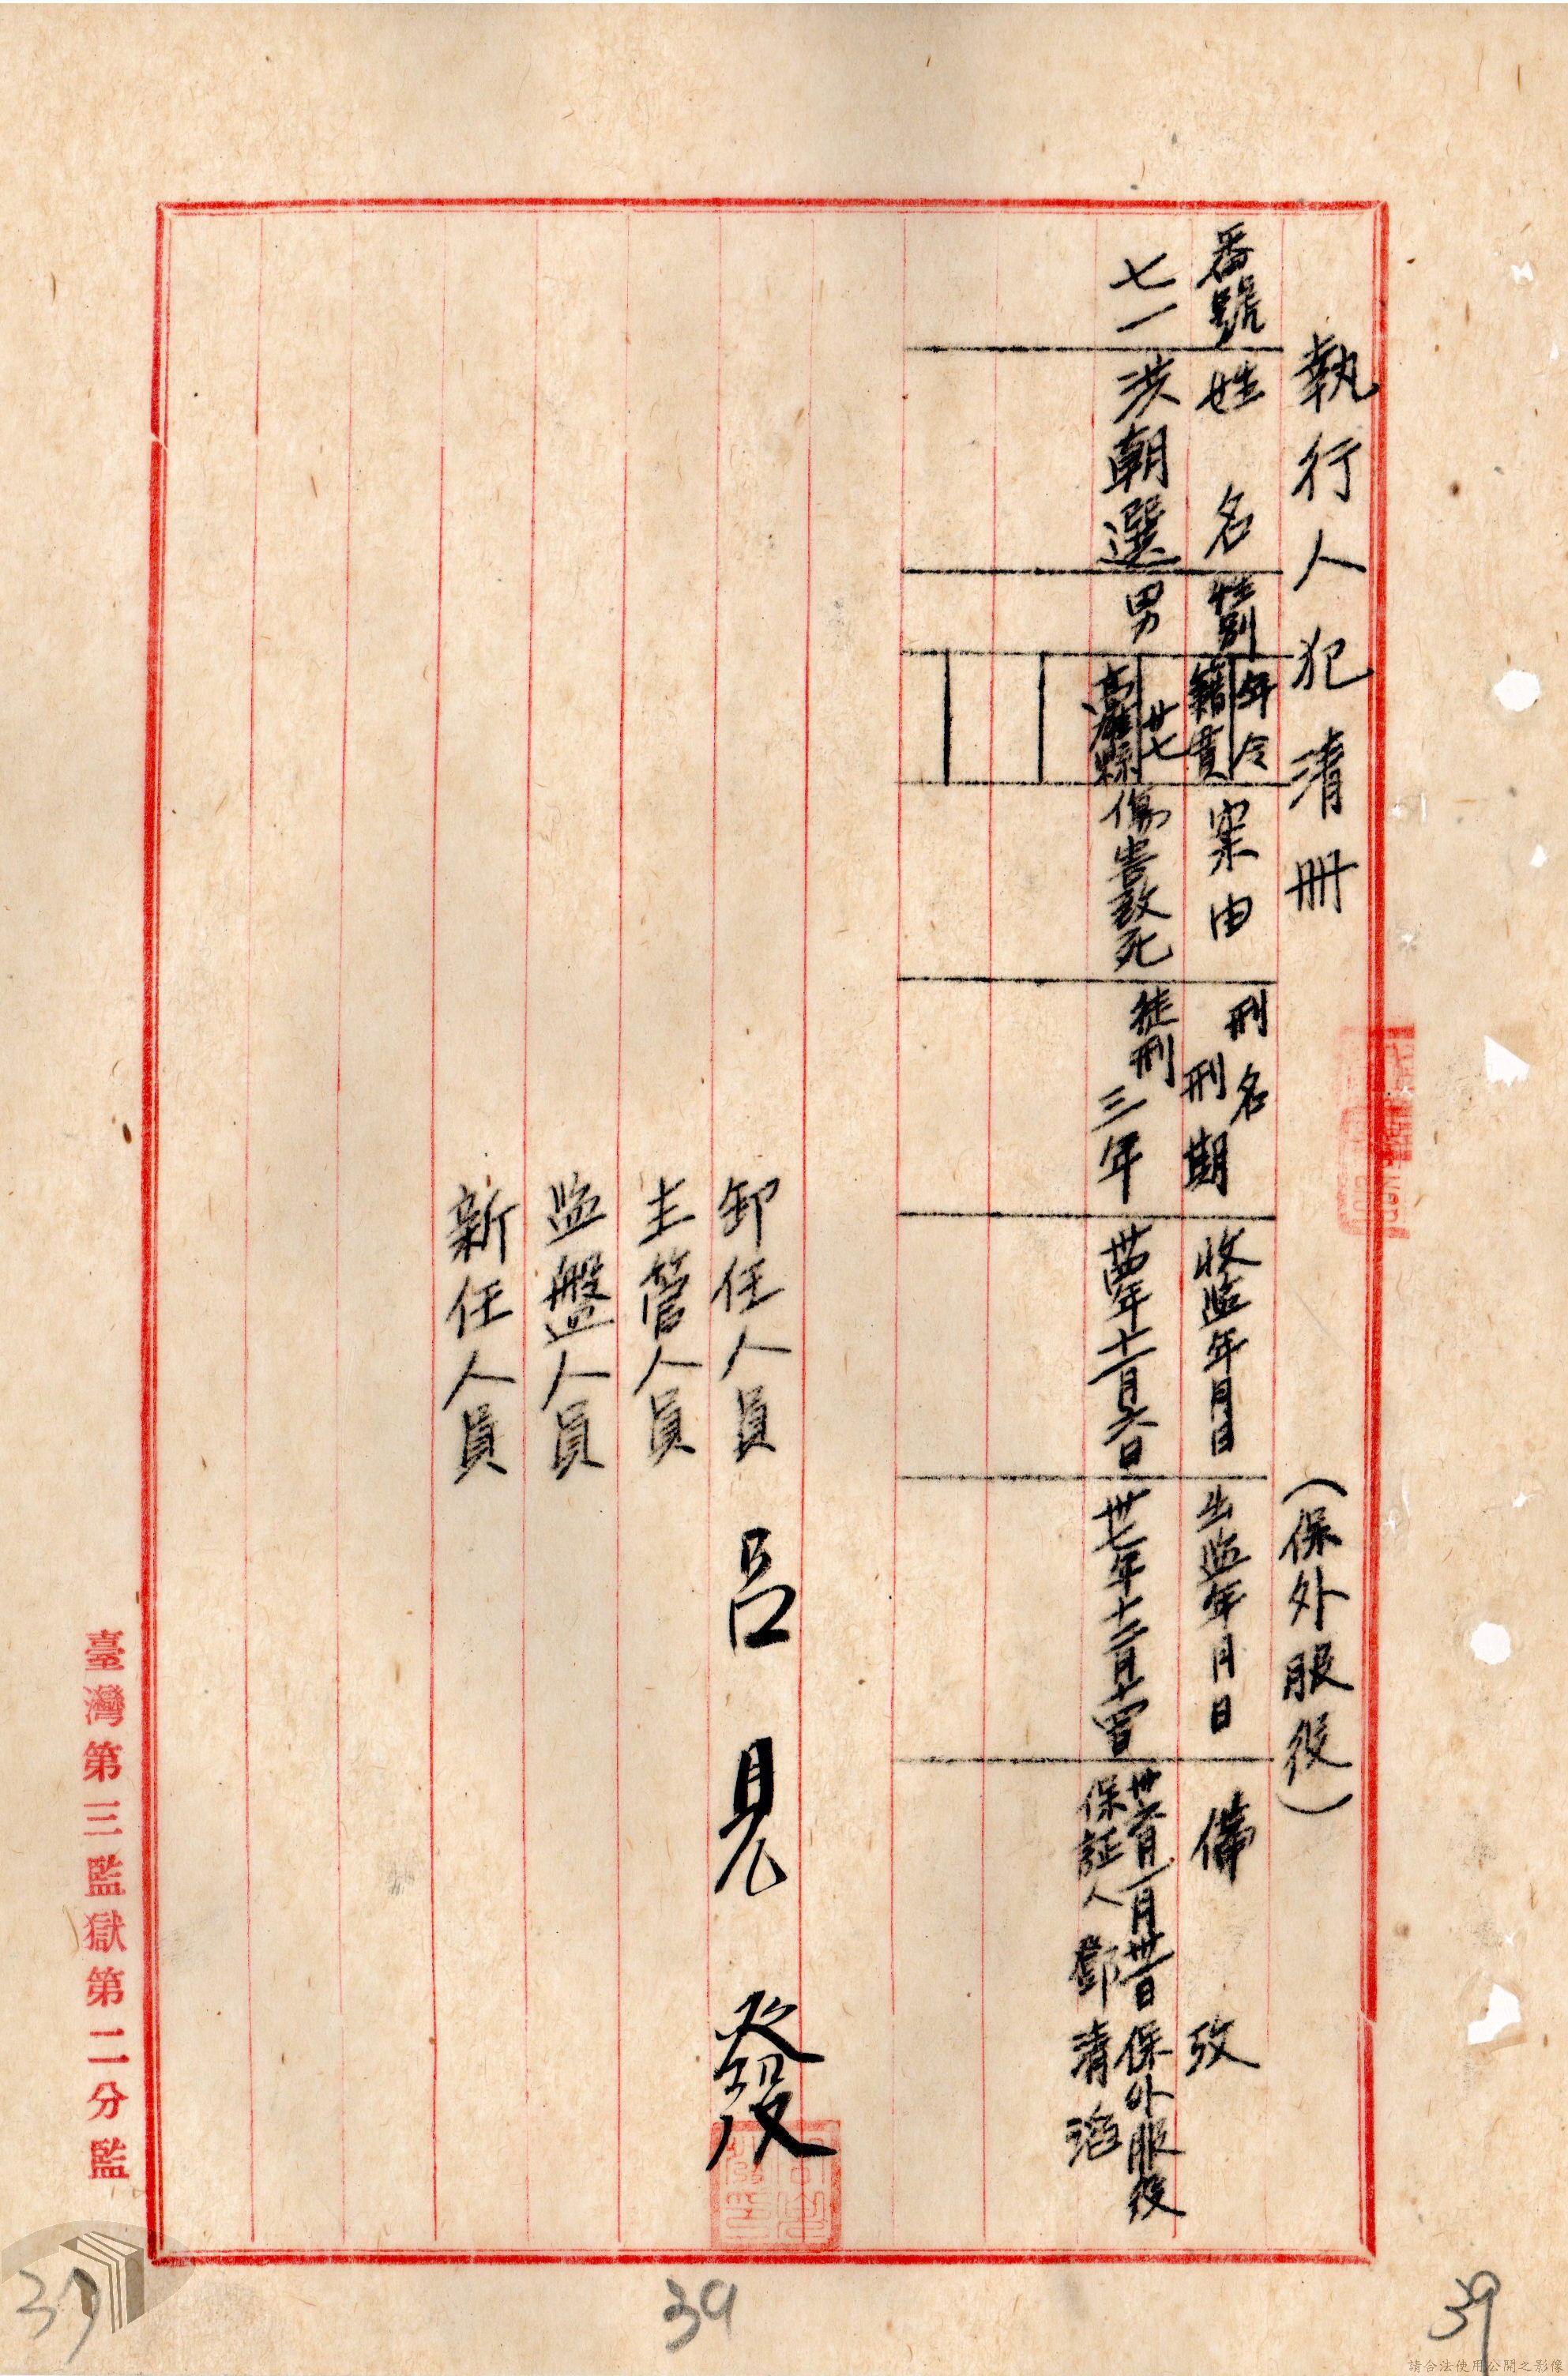 執行人犯清冊
(保外服役)
番號
姓名
性別
年令
籍貫
案由
刑名
刑期
收監年月日
出監年月日
備攷
七一
洪朝選
男
廿七
高雄縣
傷害致死
徒刑
三年
卅四年十一月六日
卅七年十二月十四日
保外服役
保証人 鄧清治
卸任人員 呂見發
主管人員
監盤人員
新任人員
臺灣第三監獄第二分監
39
39
39
請合法使用公開之影像